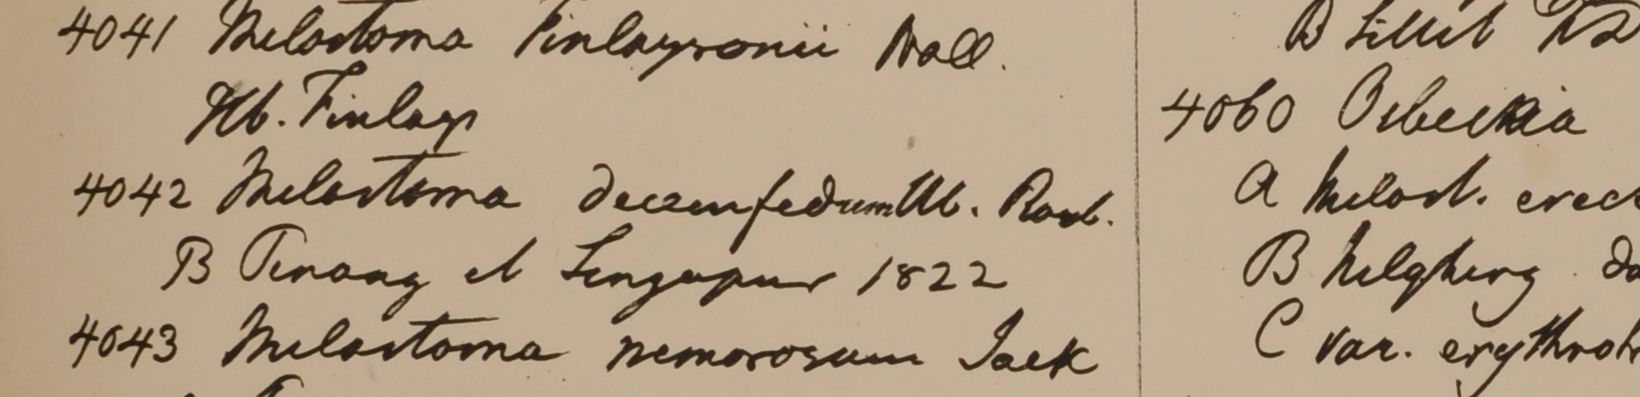 4041 Melastoma Finlaysonii Wall.
Hb. Finlays
4042 Melastoma decemfedum Hb. Roxb.
B Penang et Singapur 1822
4043 Melastoma nemorosum Jack
B Sillet
4060 Osbeckia
A Melast. erect
B Nelghery da
C var. erythro